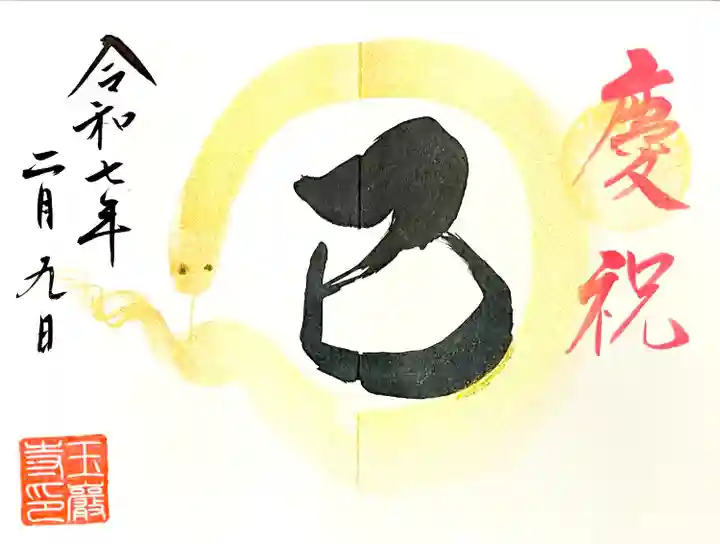 慶祝
巳
令和七年
二月九日
玉巖
寺印